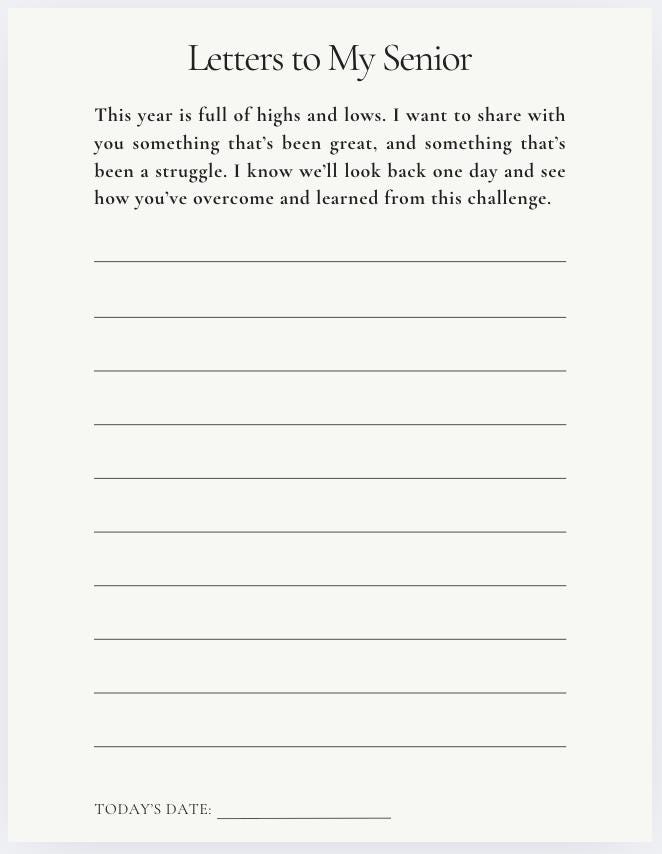 Letters to My Senior
This year is full of highs and lows. I want to share with
you something that’s been great, and something that’s
been a struggle. I know we’ll look back one day and see
how you’ve overcome and learned from this challenge.
TODAY’S DATE: